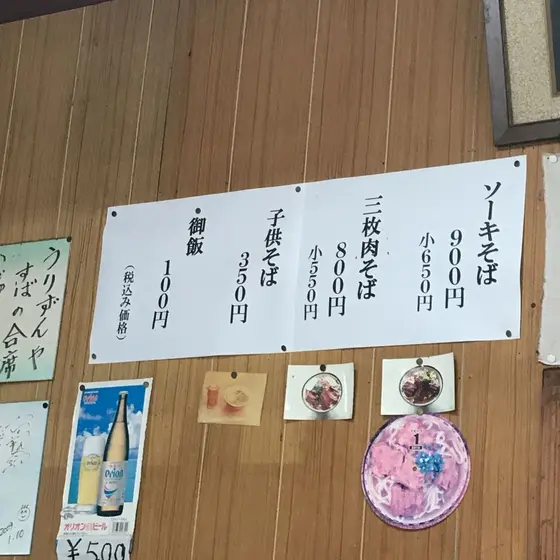 ソーキそば
900円
小650円
三枚肉そば
800円
小550円
子供そば
350円
御飯
100円
(税込み価格)
うりずんや
すばの合席
Orion
オリオン生ビール
¥500
1
1.10